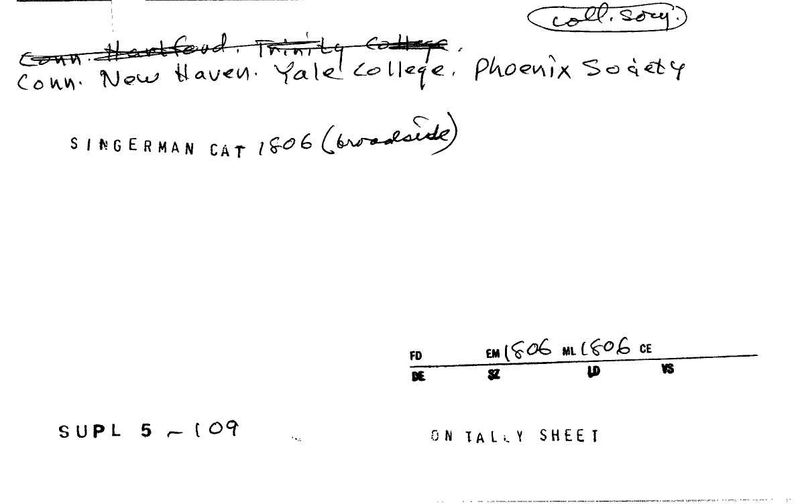 coll. socy.
Conn. Hartford. Trinity College.
Conn. New Haven. Yale College. Phoenix Society
SINGERMAN CAT 1806 (broadside)
FD EM 1806 ML 1806 CE
DE SZ LD VS
SUPL 5 - 109
ON TALLY SHEET